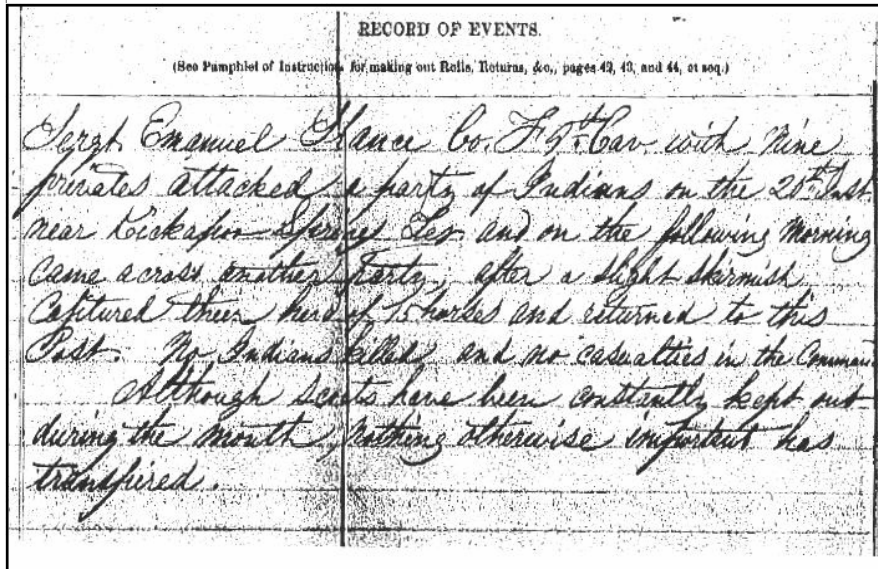 RECORD OF EVENTS.
(See Pamphlet of Instructions for making out Rolls, Returns, &c., pages 42, 43, and 44, et seq.)
Sergt Emanuel Stance Co. F 9th Cav. with Nine
privates attacked a party of Indians on the 20th Inst
near Kickapoo Springs Tex and on the following Morning
came across another party, after a slight skirmish,
captured their herd of 15 horses and returned to this
Post. No Indians killed and no casualties in the Comman
Although scouts have been constantly kept out
during the month, nothing otherwise important has
transpired.